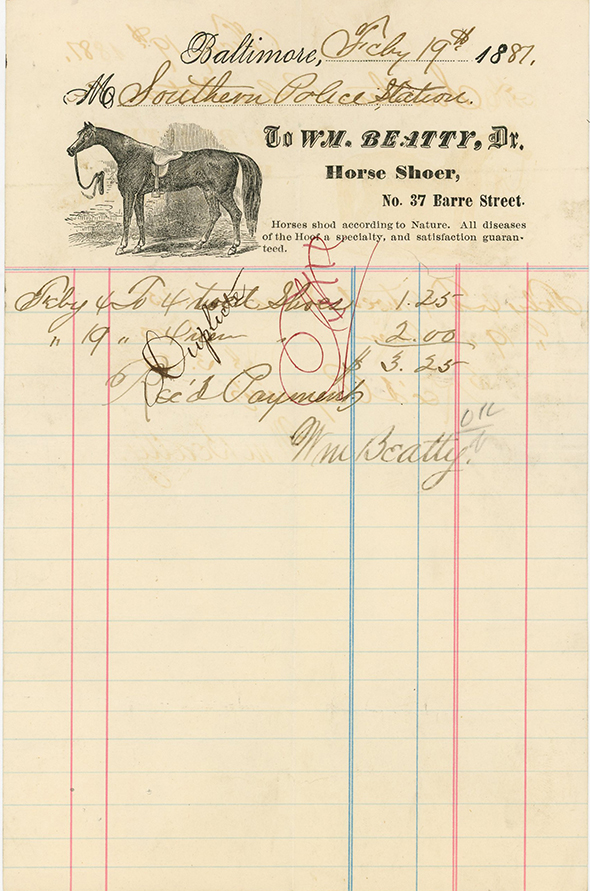 Baltimore, Feby 19th 1881.
M Southern Police Station.
To WM. BEATTY, Dr.
Horse Shoer,
No. 37 Barre Street.
Horses shod according to Nature. All diseases
of the Hoof a specialty, and satisfaction guaran-
teed.
Feby 4 To 4 Shoes 1.25
" 19 " 4 " 2.00
$ 3.25
Duplicate
Rec'd Payment
Wm Beatty.